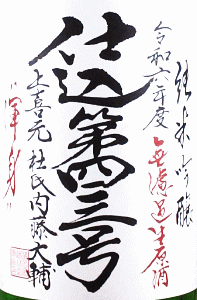 純米吟醸
令和六年度
無濾過生原酒
仕込第四三号
上喜元 杜氏内藤大輔
"渾身"